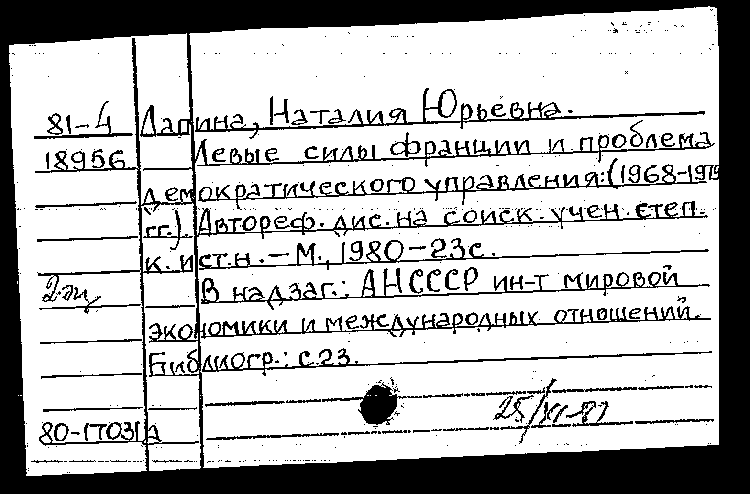 81-4 Лапина, Наталия Юрьевна.
18956 Левые силы франции и проблема
демократического управления: (1968-1979
гг.). Автореф. дис. на соиск. учен. степ.
к. ист. н. - М., 1980 - 23 с.
2 эк В надзаг.: АН СССР ин-т мировой
экономики и международных отношений.
Библиогр.: с. 23.
25/XI-81
80-17031а